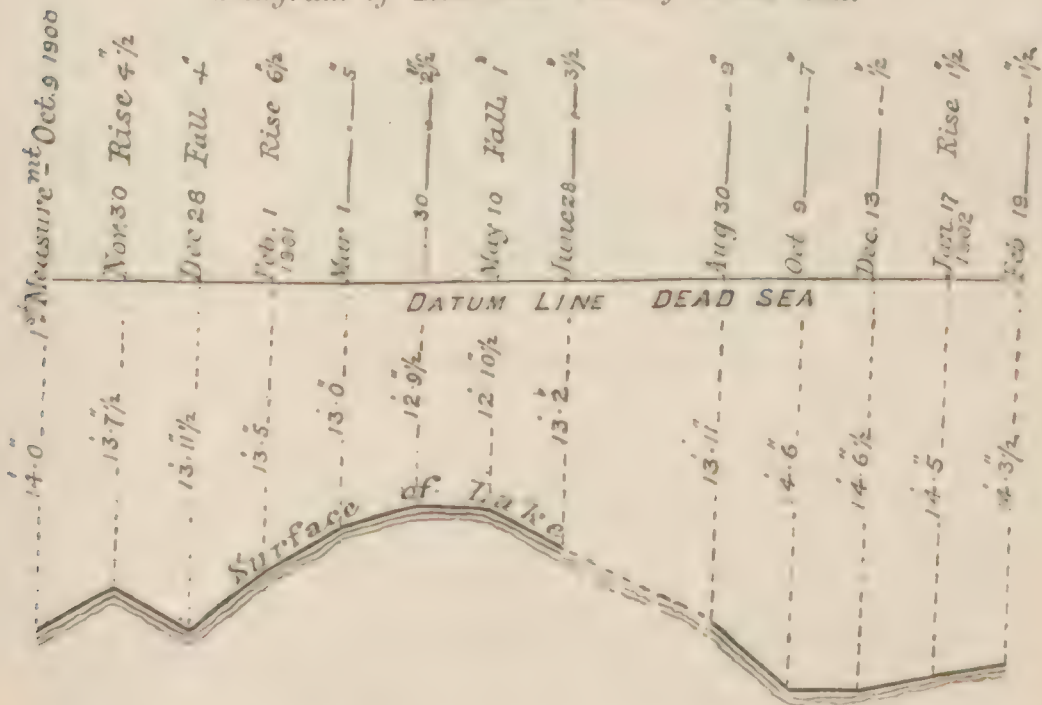 1st Measuremt Oct. 9 1900
Nov. 30 Rise 4 1/2"
Dec 28 Fall 4"
Feb. 1 Rise 6 1/2"
1901
Mar 1 — " — 5"
.. 30 — " — 2 1/2"
May 10 Fall 1"
June 28 — " — 3 1/2"
Aug 30 — " — 9"
Oct 9 — " — 7"
Dec. 13 — " — 1/2"
Jan. 17 Rise 1 1/2"
1902
Feb 19 — " — 1 1/2"
DATUM LINE DEAD SEA
14'.0"
13'.7 1/2"
13'.11 1/2"
13'.5"
13'.0"
12'.9 1/2"
12'.10 1/2"
13'.2"
13'.11"
14'.6"
14'.6 1/2"
14'.5"
14'.3 1/2"
Surface of Lake